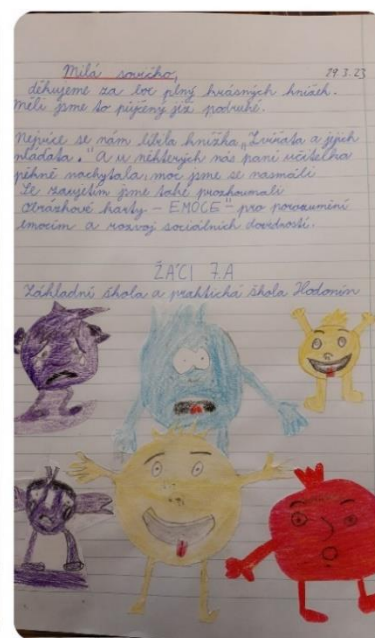 Milá sovičko, 29.3.23
děkujeme za box plný krásných knížek.
Měli jsme to půjčený již podruhé.
Nejvíce se nám líbila knížka „Zvířata a jejich
mláďata." A u některých nás paní učitelka
pěkně nachytala, moc jsme se nasmáli
Se zaujetím jsme také prozkoumali
obrázkové karty - EMOCE" pro porozumění
emocím a rozvoj sociálních dovedností.
ŽÁCI 7.A
Základní škola a praktická škola Hodonín